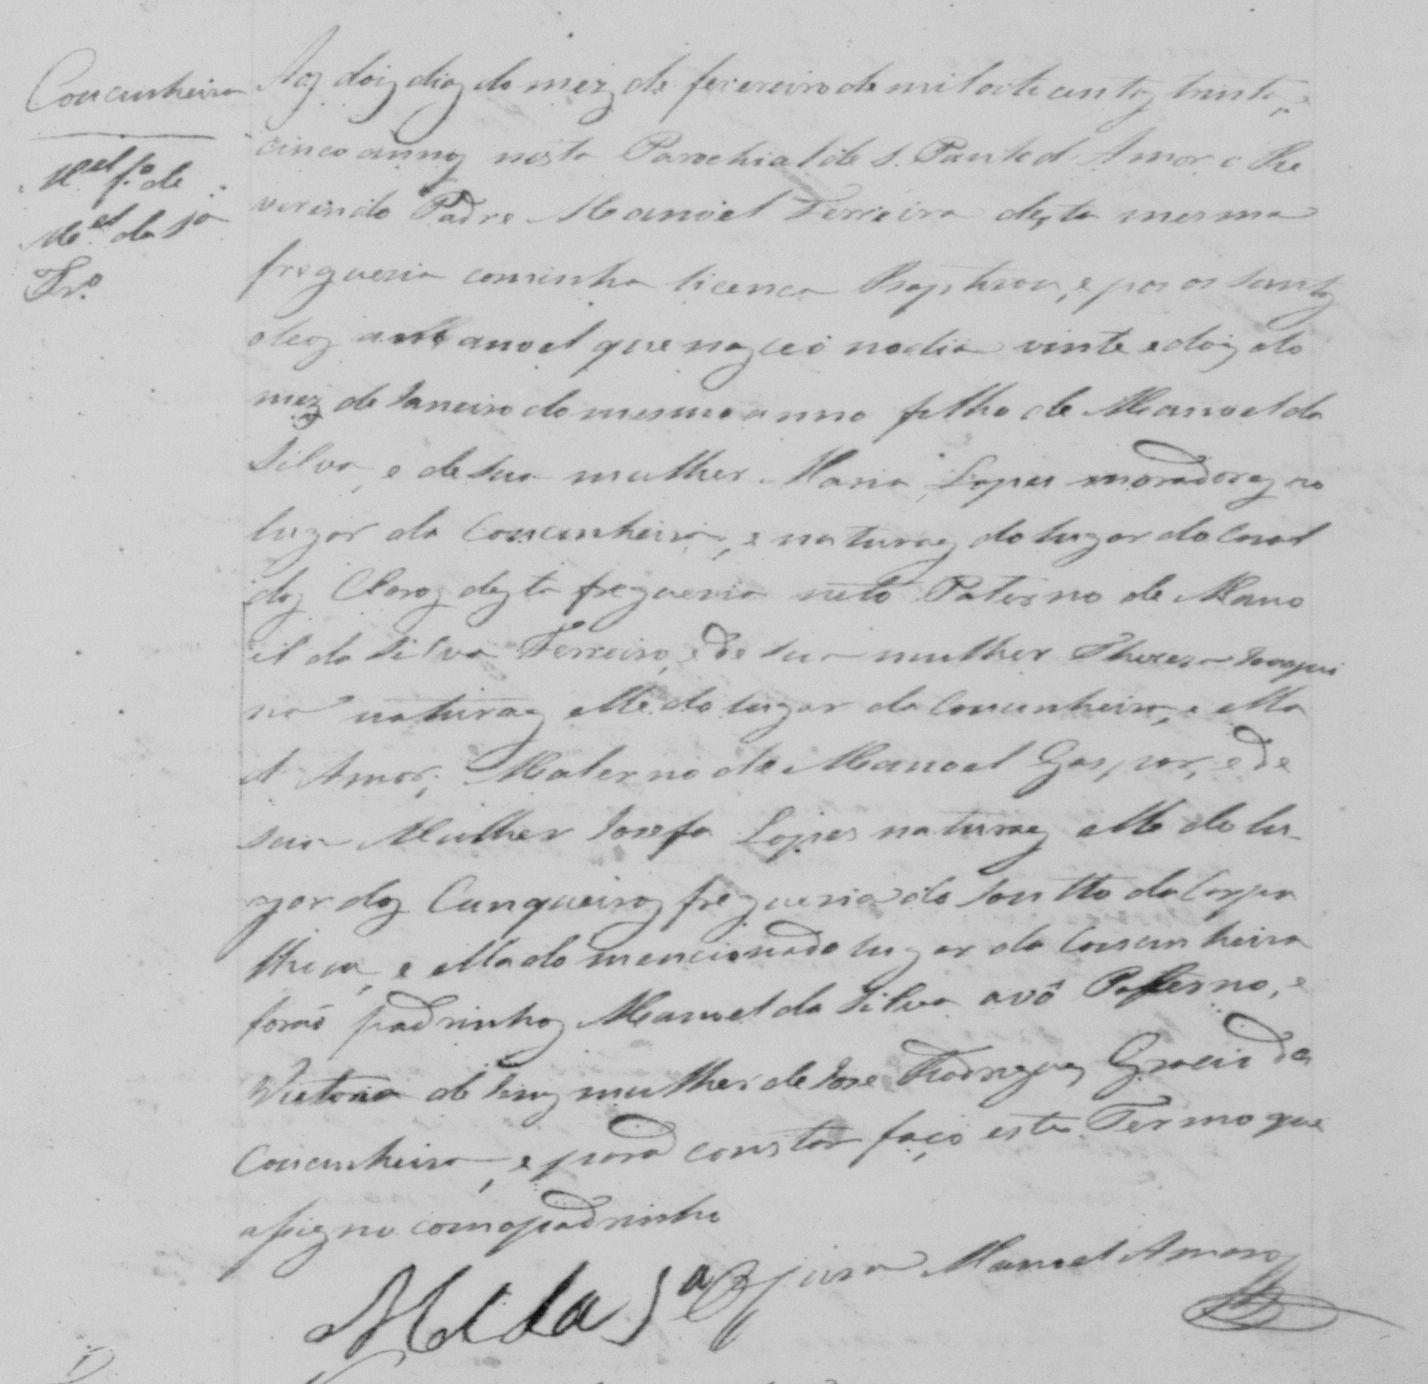 Coucinheira
M.el f.o de
M.el da S.a
Fr.o
Aos dois dias do mez de fevereiro de mil oito centos trinta, e
cinco annos nesta Parochial de S. Paulo d'Amor o Re
verendo Padre Manoel Ferreira desta mesma
freguesia com minha licenca Baptisou, e pos os santos
oleos a Manoel que nasceo no dia vinte e dois do
mez de Janeiro do mesmo anno filho de Manoel da
Silva, e de sua mulher Maria Lopes moradores no
lugar da Coucinheira, e naturaes do lugar do Casal
dos Claros desta freguesia neto Paterno de Mano
el da Silva Ferreiro, e de sua mulher Thereza Joaqui
na naturaes elle do lugar da Coucinheira, e ella
d'Amor; Materno de Manoel Gaspar, e de
sua Mulher Josefa Lopes naturaes elle do lu-
gar dos Cunqueiros freguesia do Soutto da Carpa
lhosa, e ella do mencionado lugar da Coucinheira
forão padrinhos Manoel da Silva avô Paterno, e
Victoria de Jesus mulher de Jose Rodrigues Gracio da
Coucinheira, e para constar faço este Termo que
assigno com o padrinho
M.el da S.a O Cura Manoel Amaro